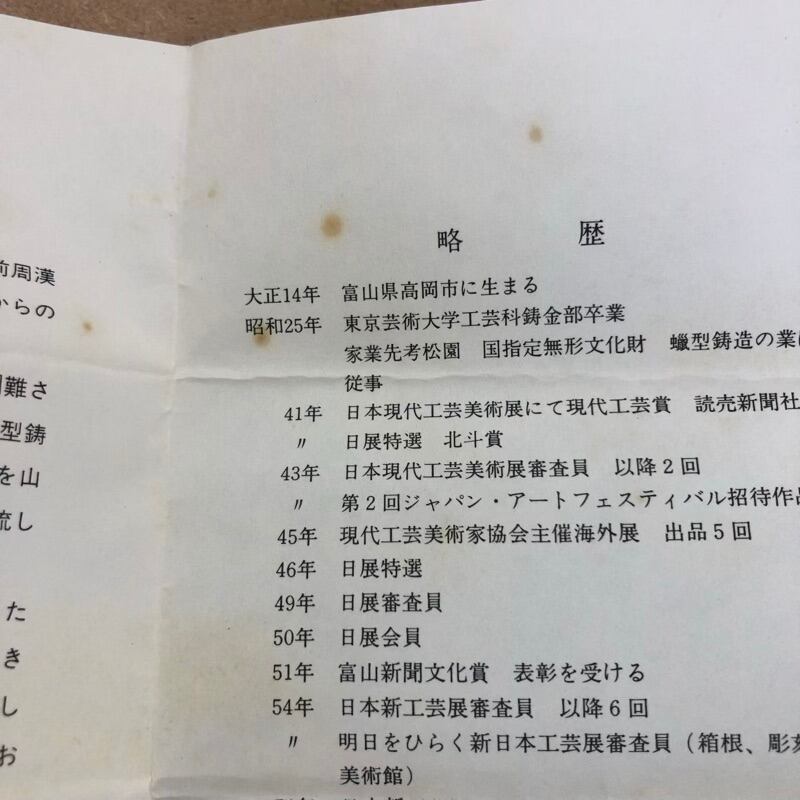 前周漢
からの
難さ
型鋳
を山
流し
た
き
し
お
略　歴
大正14年　富山県高岡市に生まる
昭和25年　東京芸術大学工芸科鋳金部卒業
家業先考松園　国指定無形文化財　蠟型鋳造の業に
従事
41年　日本現代工芸美術展にて現代工芸賞　読売新聞社
〃　日展特選　北斗賞
43年　日本現代工芸美術展審査員　以降2回
〃　第2回ジャパン・アートフェスティバル招待作品
45年　現代工芸美術家協会主催海外展　出品5回
46年　日展特選
49年　日展審査員
50年　日展会員
51年　富山新聞文化賞　表彰を受ける
54年　日本新工芸展審査員　以降6回
〃　明日をひらく新日本工芸展審査員（箱根、彫刻
美術館）